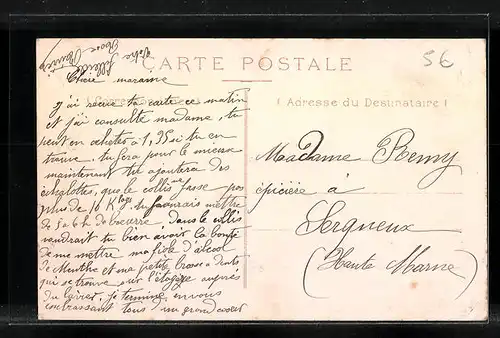 Votre
fille
Rose Remy
CARTE POSTALE
5€
Chère marraine
( Correspondance )
( Adresse du Destinataire )
j'ai reçue ta carte ce matin
et j'ai consulté madame, tu
peut en acheter à 1,95 si tu en
trouve, tu fera pour le mieux
maintenant tu ajoutera des
échalottes, que le collis ne fasse pas
plus de 10 Kilogs, tu pourrais mettre
de 5 a 6 h de beurre. Dans le collis
voudrait tu bien avoir la bonté
de me mettre ma fiole d'alcool
de Menthe et ma petite brosse a dents
qui se trouve sur l'étagère auprès
du lavier, je termine en vous
embrassant tous d'un grand coeur
Madame Remy
épicière à
Serqueux
(Haute Marne)